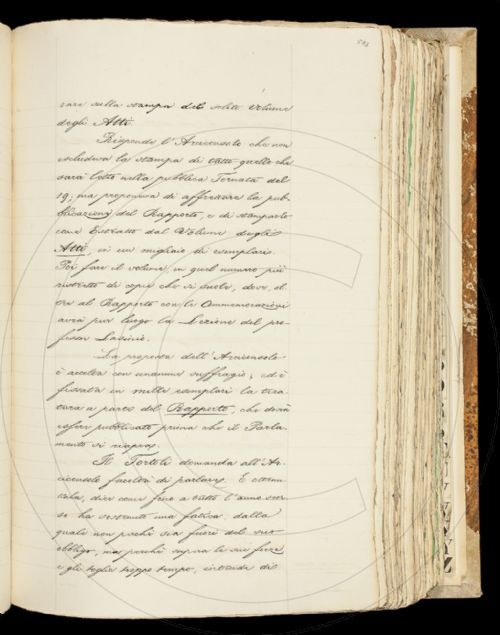 593
rare sulla stampa del solito Volume
degli Atti.
Risponde l'Arciconsolo che non
escludeva la stampa di tutto quello che
sarà letto nella pubblica Tornata del
19; ma proponeva di affrettare la pub-
blicazione del Rapporto, e di stamparlo
come Estratto dal Volume degli
Atti, in un migliaio di esemplari.
Poi fare il volume, in quel numero più
ristretto di copie che si suole, dove, ol-
tre al Rapporto con le Commemorazioni
avrà pur luogo la Lezione del pro-
fessor Lasinio.
La proposta dell'Arciconsolo
è accolta con unanime suffragio, ed è
fissata in mille esemplari la tira-
tura a parte del Rapporto, che dovrà
esser pubblicato prima che il Parla-
mento si riapra.
Il Tortoli domanda all'Ar-
ciconsolo facoltà di parlare. E ottenu-
tala, dice come fino a tutto l'anno scor-
so ha sostenuto una fatica, dalla
quale non perché sia fuori del suo
obbligo, ma perché supera le sue forze
e gli toglie troppo tempo, intende di